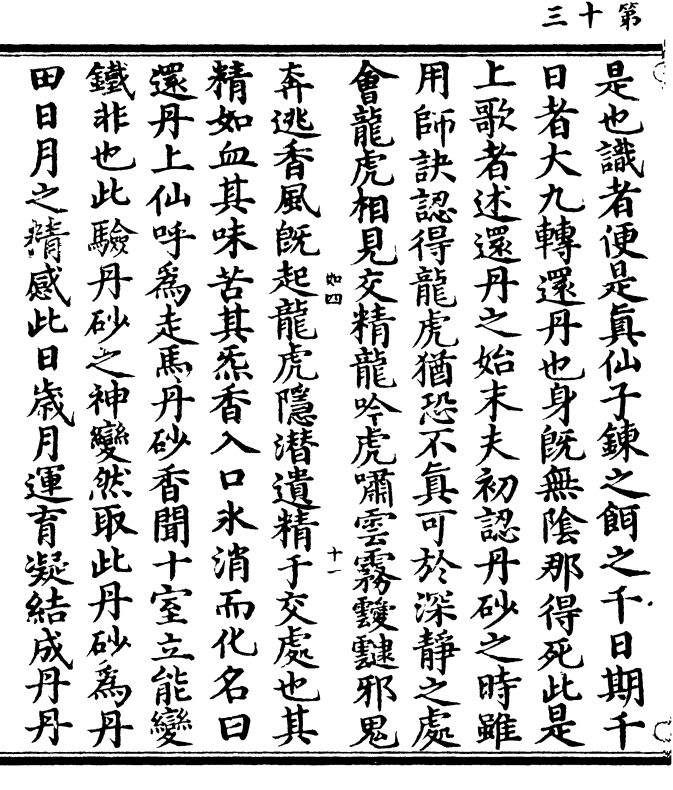 第十三
是也識者便是眞仙子鍊之餌之千日期千
日者大九轉還丹也身旣無陰那得死此是
上歌者述還丹之始末夫初認丹砂之時雖
用師訣認得龍虎猶恐不眞可於深靜之處
會龍虎相見交精龍吟虎嘯雲霧靉靆邪鬼
如四
十一
奔逃香風旣起龍虎隱潜遺精于交處也其
精如血其味苦其炁香入口氷消而化名曰
還丹上仙呼爲走馬丹砂香聞十室立能變
鐵非也此驗丹砂之神變然取此丹砂爲丹
田日月之精感此日歲月運育凝結成丹丹